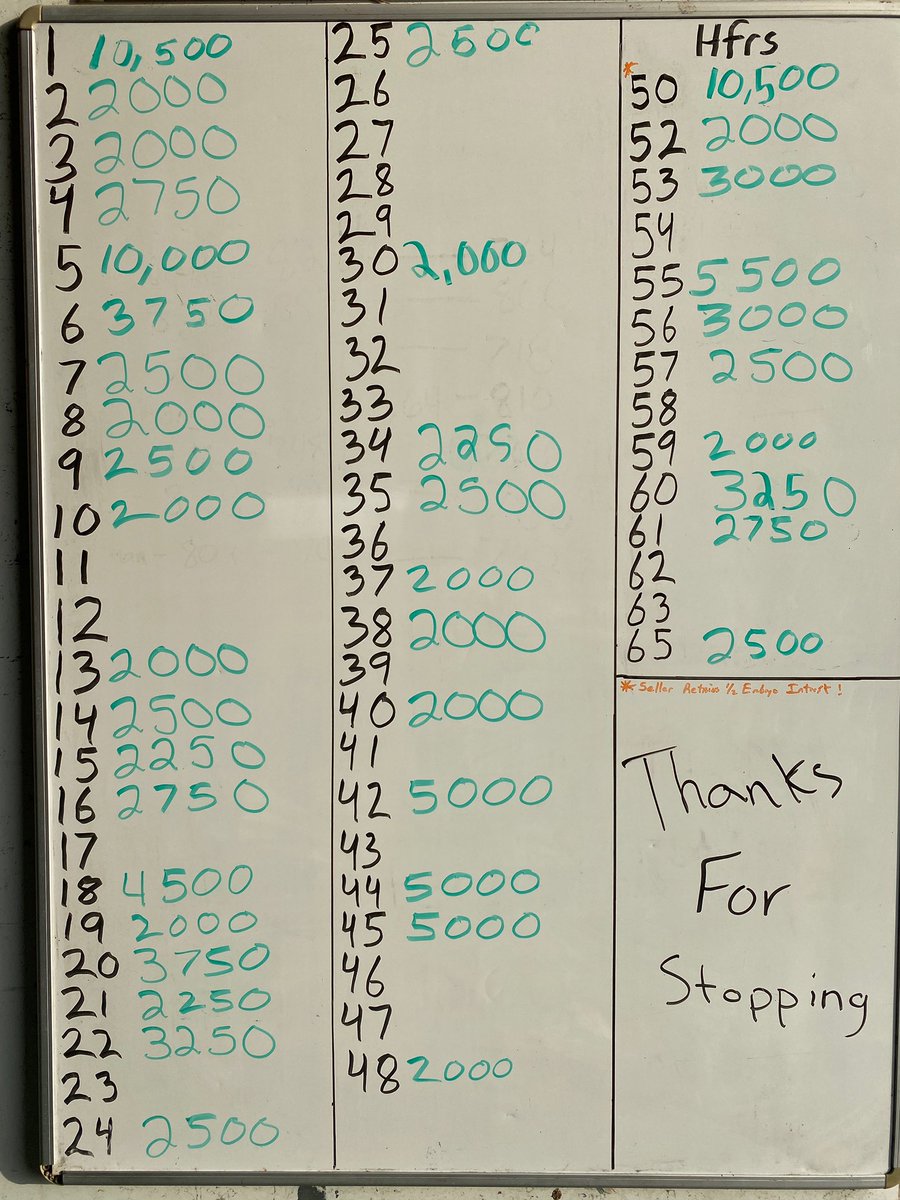 1 10,500
2 2000
3 2000
4 2750
5 10,000
6 3750
7 2500
8 2000
9 2500
10 2000
11
12
13 2000
14 2500
15 2250
16 2750
17
18 4500
19 2000
20 3750
21 2250
22 3250
23
24 2500
25 2500
26
27
28
29
30 2,000
31
32
33
34 2250
35 2500
36
37 2000
38 2000
39
40 2000
41
42 5000
43
44 5000
45 5000
46
47
48 2000
Hfrs
*50 10,500
52 2000
53 3000
54
55 5500
56 3000
57 2500
58
59 2000
60 3250
61 2750
62
63
65 2500
*Seller Retains 1/2 Embryo Intrest!
Thanks
For
Stopping